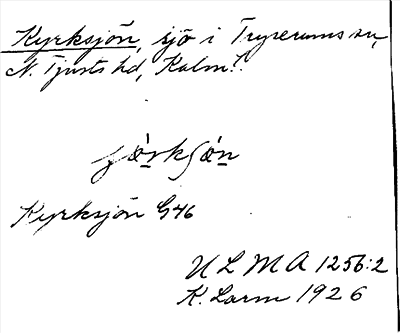 Kyrksjön, sjö i Tryserums sn,
N. Tjusts hd, Kalm. l.
Kyrksjön G46
U L M A 1256:2
K. Larm 1926